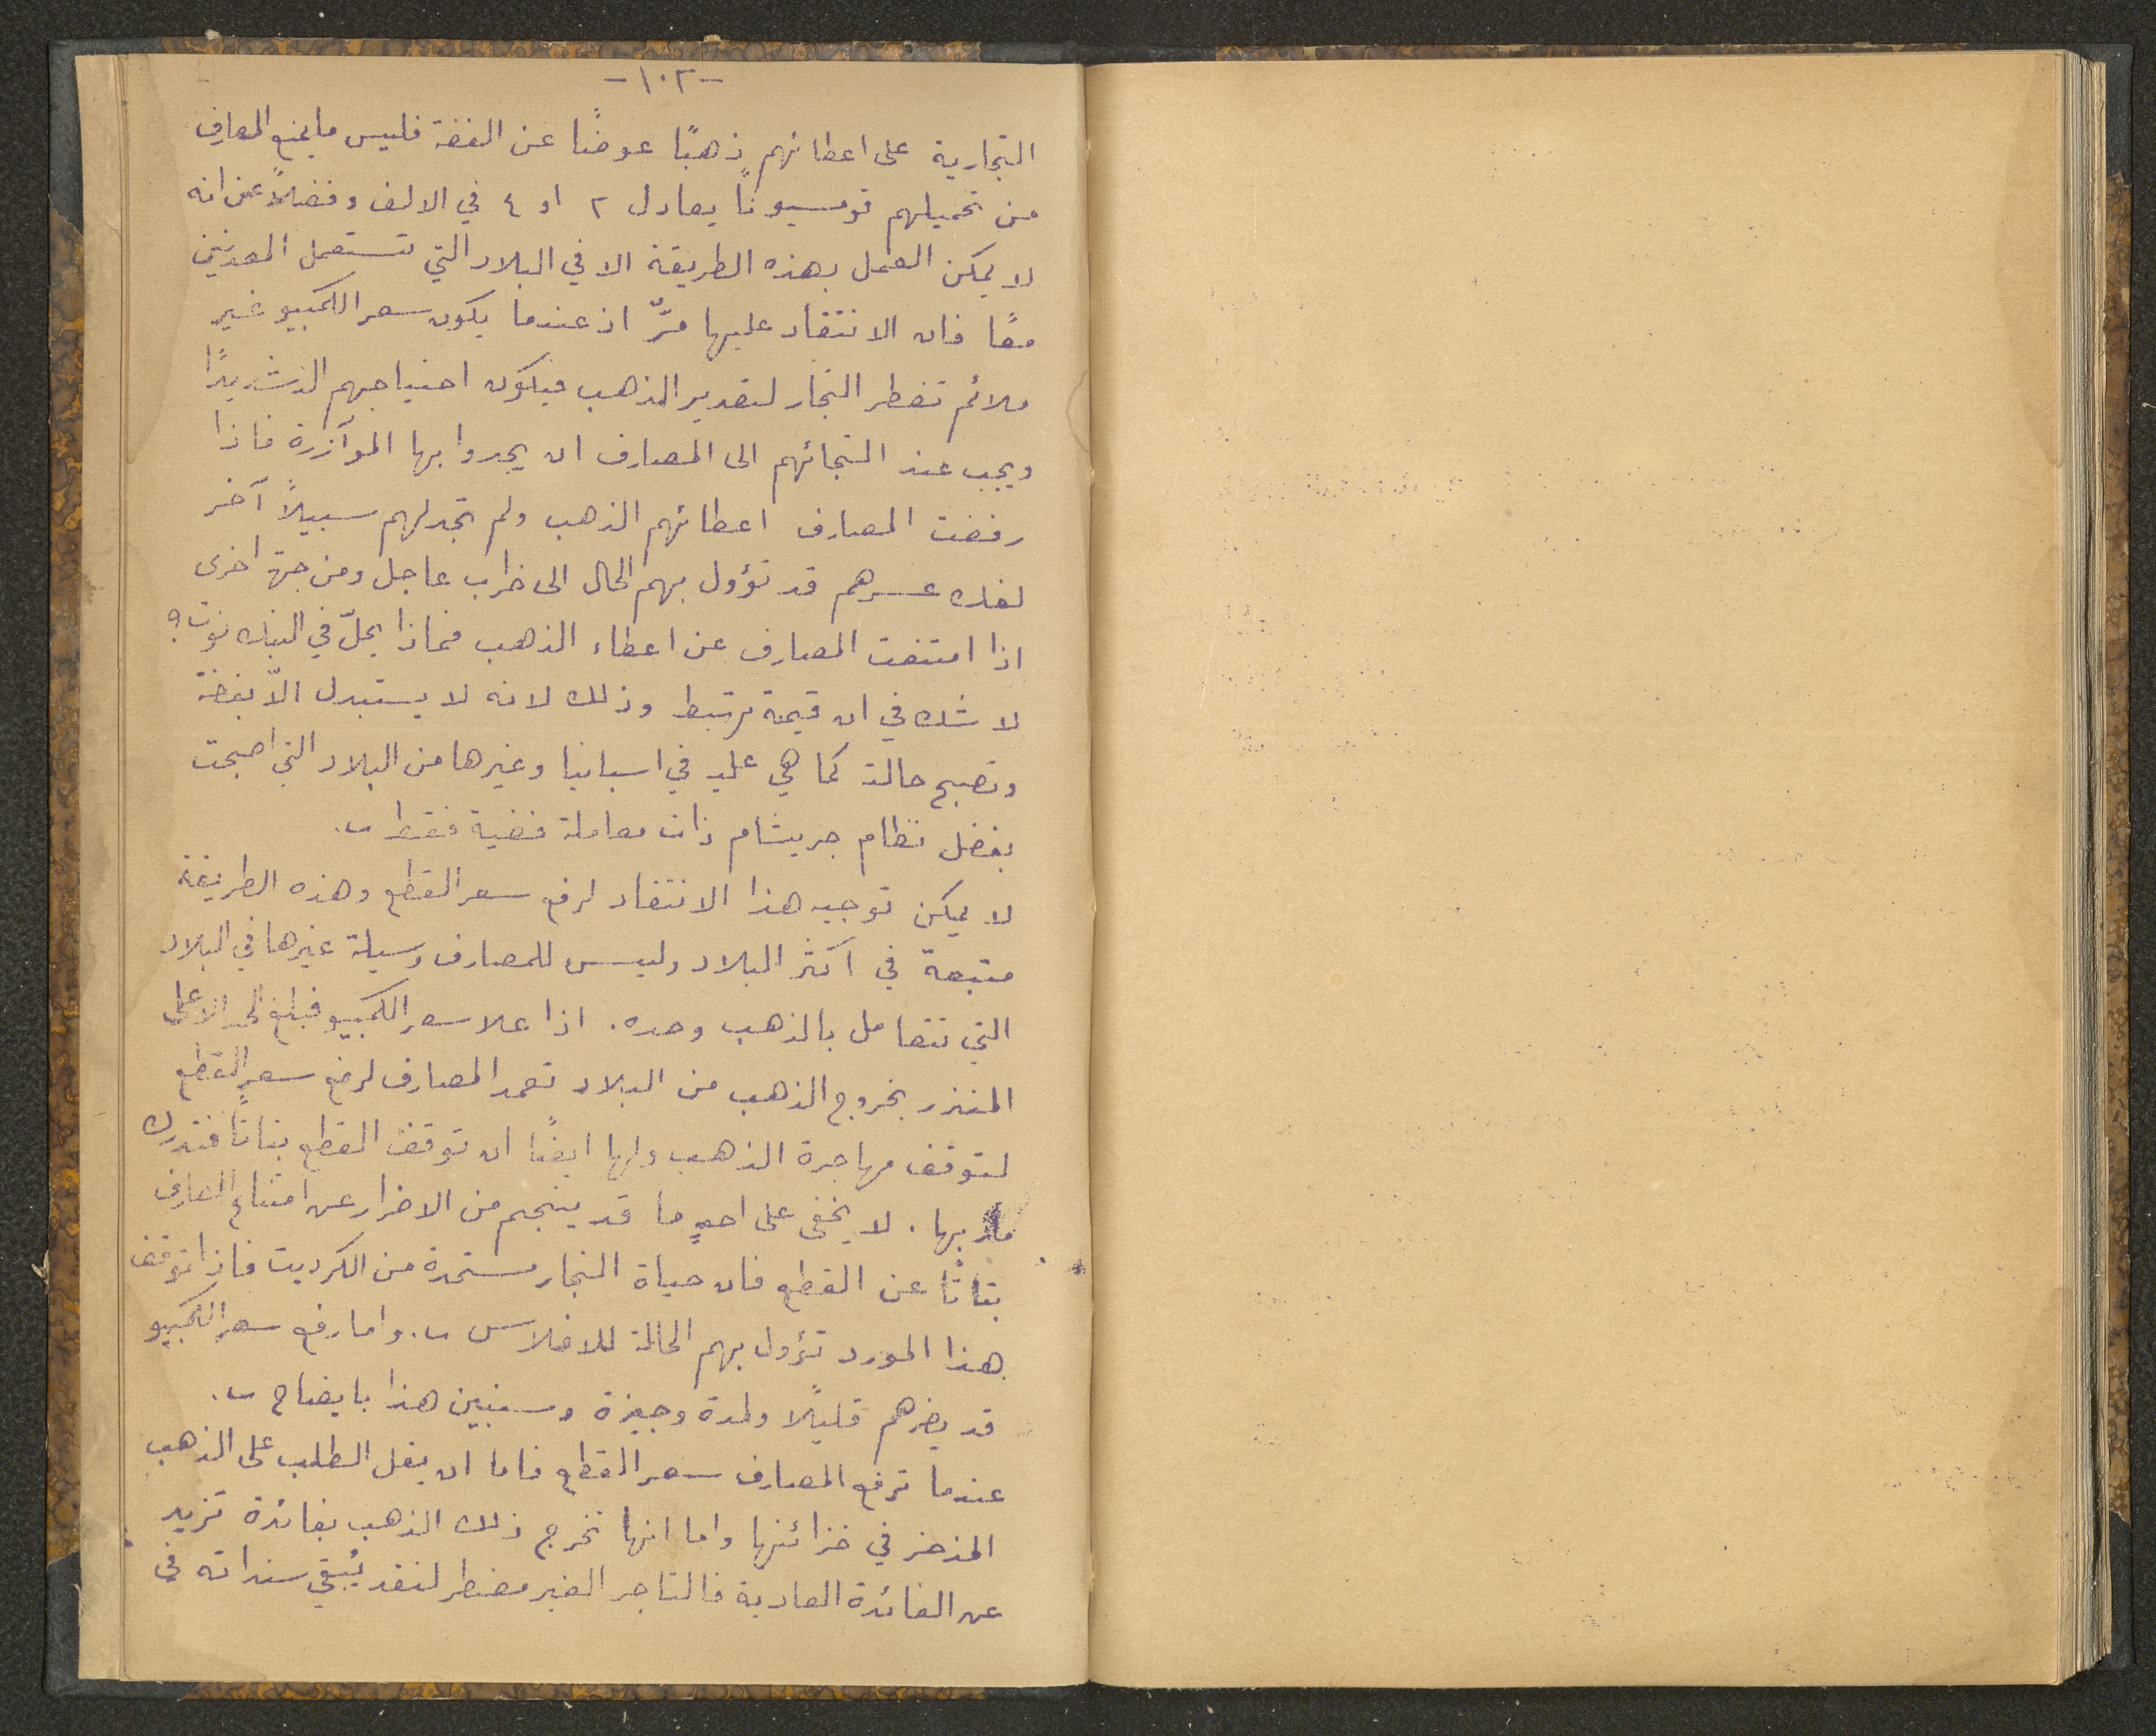 -١٠٢-
التجارية على اعطائهم ذهبًا عوضًا عن الفضة فليس ما يمنع المصارف
من تحميلهم قومسيونًا يعادل ٢ او ٤ في الالف وفضلاً عن انه
لا يمكن العمل بهذه الطريقة الا في البلاد التي تستعمل المعدنين
معًا فان الانتقاد عليها مرٌّ اذ عندما يكون سعر الكمبيو غير
ملائم تضطر التجار لتقدير الذهب فيكون احتياجهم اليه شديدًا
ويجب عند التجائهم الى المصارف ان يجدوا بها الموآزرة فاذا
رفضت المصارف اعطائهم الذهب ولم تجد لهم سبيلاً آخر
لفك عسرهم قد تؤول بهم الحال الى خراب عاجل ومن جهة اخرى
اذا امتنعت المصارف عن اعطاء الذهب فماذا يحلّ في البنك نوت؟
لا شك في ان قيمته تهبط وذلك لانه لا يستبدل الاّ بفضة
وتصبح حالته كما هي عليه في اسبانيا وغيرها من البلاد التي اصبحت
بفضل نظام جريشام ذات معاملة فضية فقط.
لا يمكن توجيه هذا الانتقاد لرفع سعر القطع وهذه الطريقة
متبعة في اكثر البلاد وليس للمصارف وسيلة غيرها في البلاد
التي تتعامل بالذهب وحده. اذا علا سعر الكمبيو فبلغ الحد الاعلى
المنذر بخروج الذهب من البلاد تعمد المصارف لرفع سعر القطع
لتوقف مهاجرة الذهب ولها ايضًا ان توقف القطع بتاتًا فتدرك
مآربها. لا يخفى على احدٍ ما قد ينجم من الاضرار عن امتناع المصارف
بتاتًا عن القطع فان حياة التجار مستمدة من الكرديت فاذا توقف
هذا المورد تؤول بهم الحالة للافلاس. واما رفع سعر الكمبيو
قد يضرهم قليلاً ولمدة وجيزة وسنبين هذا بايضاح.
عندما ترفع المصارف سعر القطع فاما ان يقل الطلب على الذهب
المذخر في خزائنها واما انها تخرج ذلك الذهب بفائدة تزيد
عن الفائدة العادية فالتاجر الغير مضطر لنقد يُبقي سنداته في